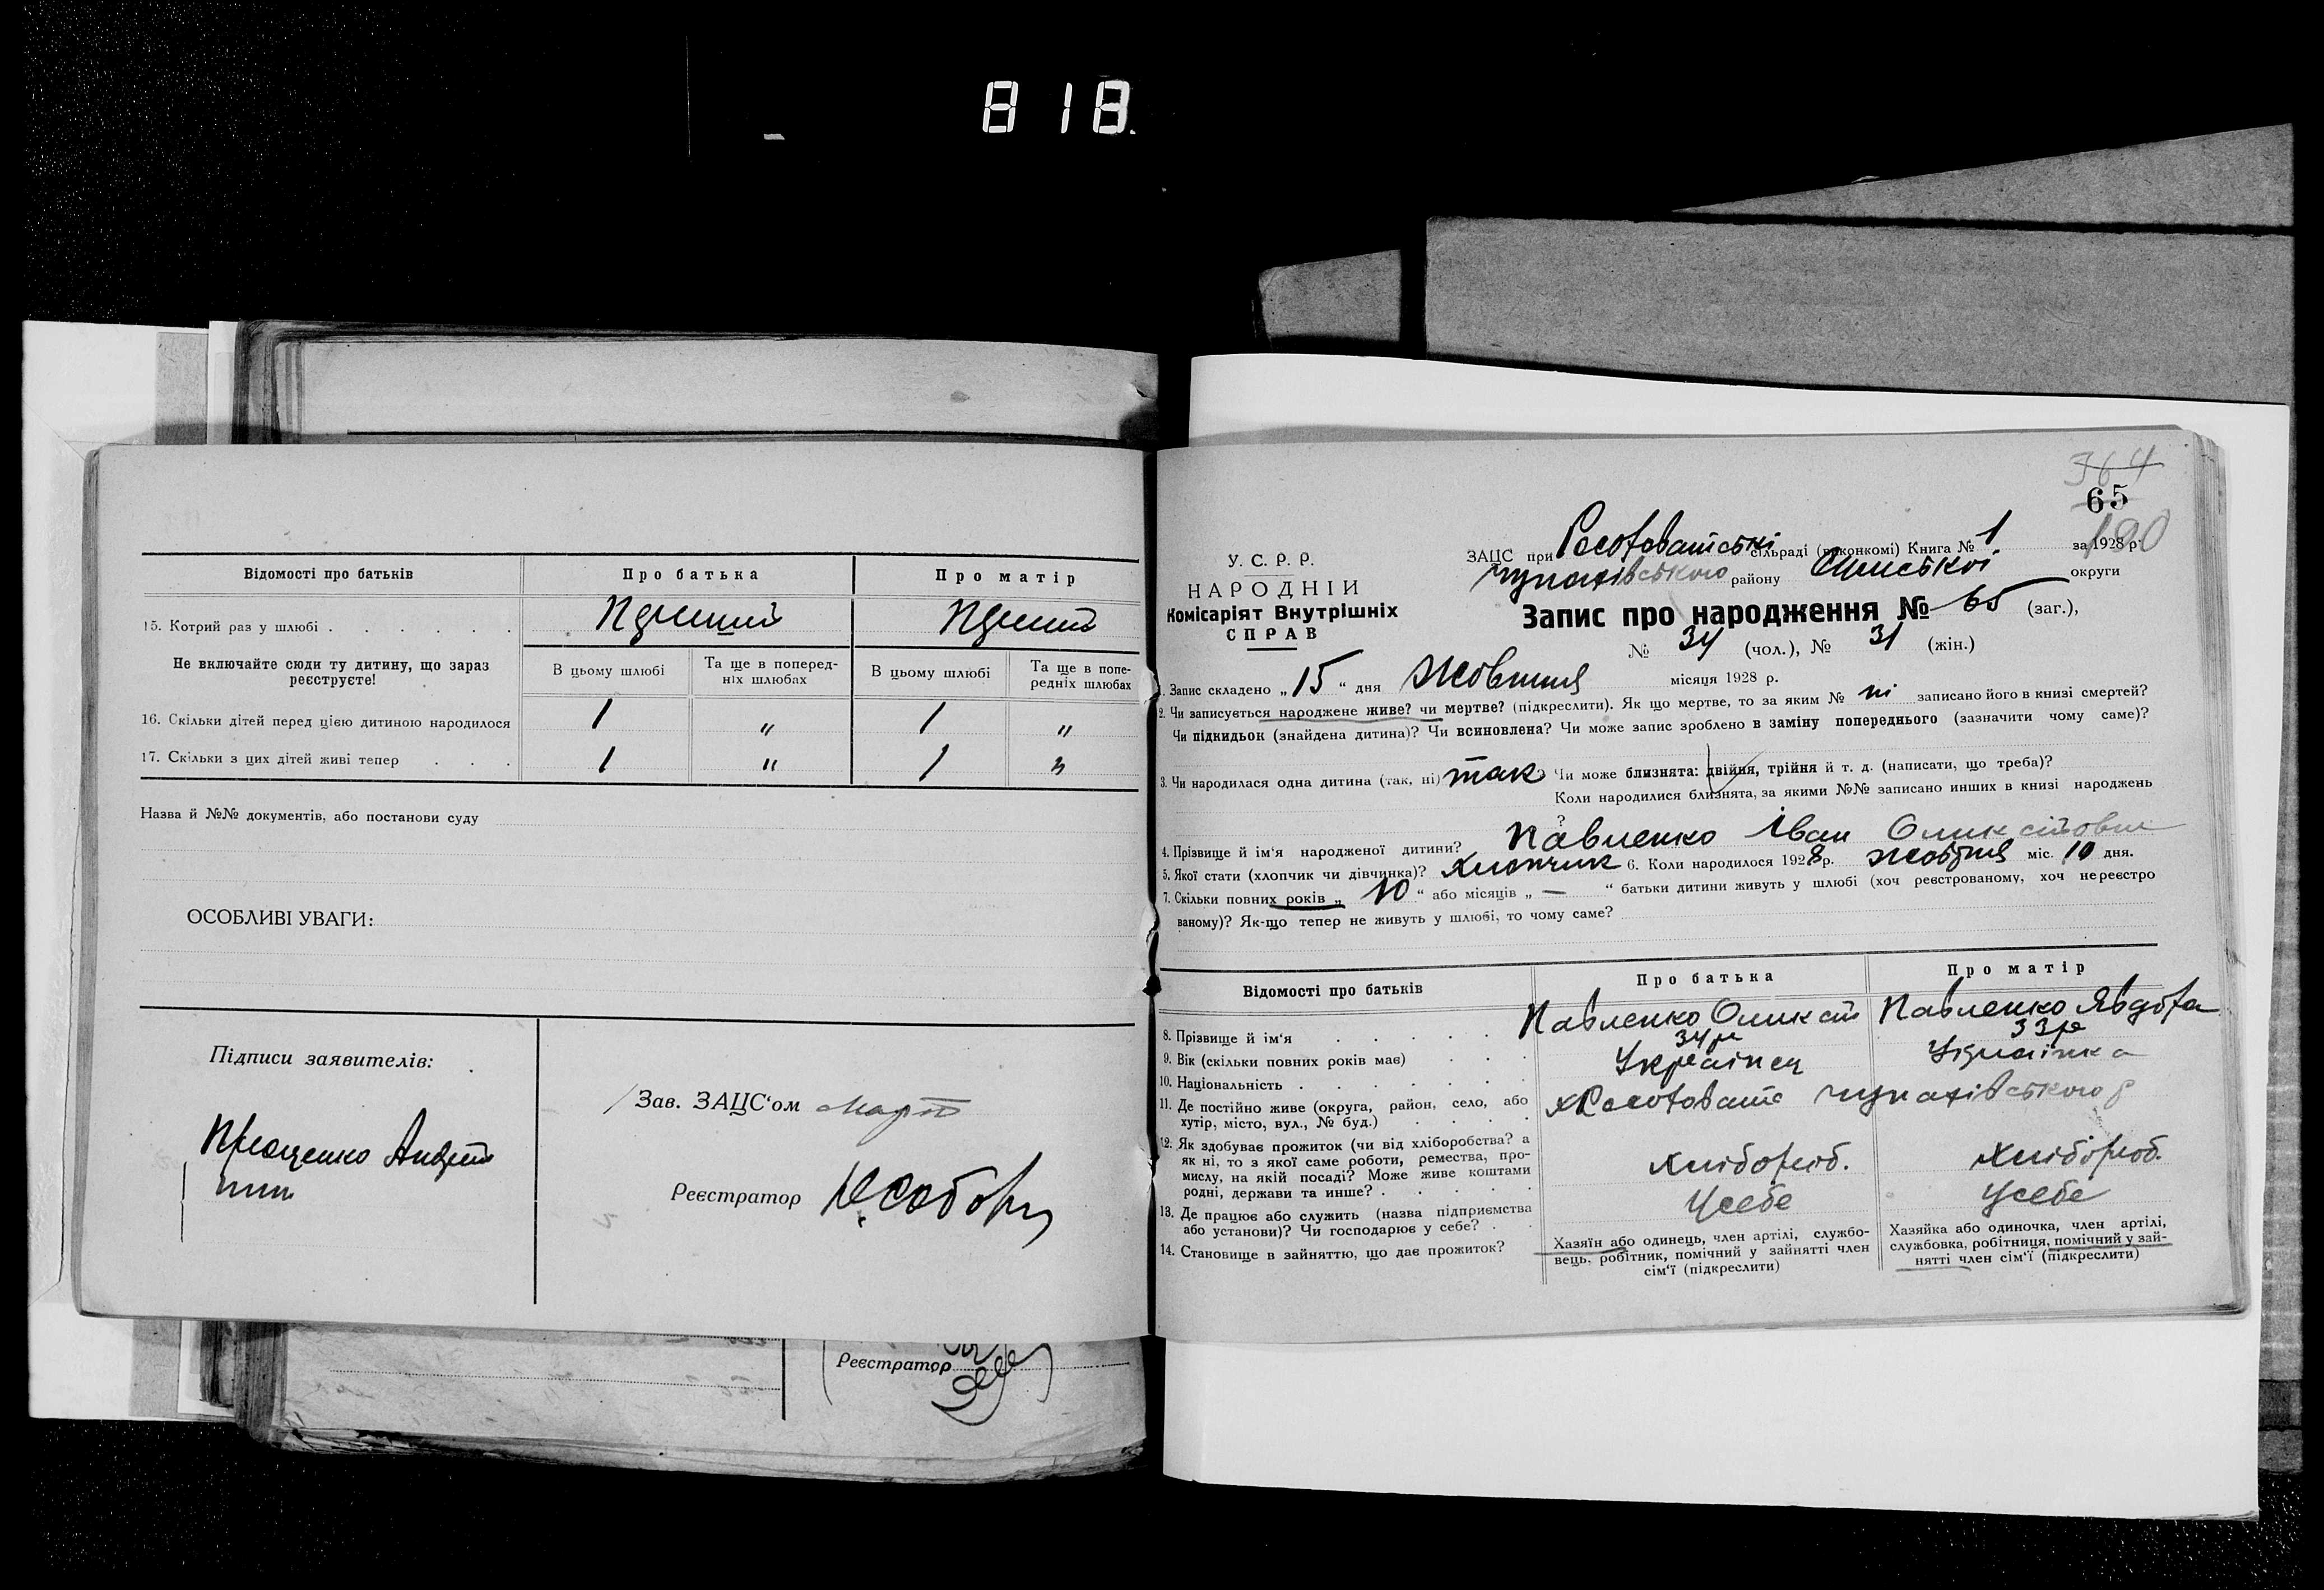 818.
Відомості про батьків
Про батька
Про матір
15. Котрий раз у шлюбі
Не включайте сюди ту дитину, що зараз
реєструєте!
В цьому шлюбі
Та ще в поперед-
ніх шлюбах
В цьому шлюбі
Та ще в попе-
редніх шлюбах
16. Скільки дітей перед цією дитиною народилося 1 " 1 "
17. Скільки з цих дітей живі тепер . . . 1 " 1 "
Назва й №№ документів, або постанови суду
ОСОБЛИВІ УВАГИ:
Підписи заявителів:
Андрій
Зав. ЗАЦС'ом
Реєстратор
Реєстратор
364
65
180
У. С. Р. Р.
НАРОДНІЙ
Комісаріят Внутрішніх
СПРАВ
ЗАЦС при сільраді (виконкомі) Книга № 1 за 1928 р.
району округи
Запис про народження № 65 (заг.),
№ 34 (чол.), № 31 (жін.)
1. Запис складено „ 15 “ дня Жовтня місяця 1928 р.
2. Чи записується народжене живе? чи мертве? (підкреслити). Як що мертве, то за яким № ні записано його в книзі смертей?
Чи підкидьок (знайдена дитина)? Чи всиновлена? Чи може запис зроблено в заміну попереднього (зазначити чому саме)?
3. Чи народилася одна дитина (так, ні) так Чи може близнята: двійня, трійня й т. д. (написати, що треба)?
Коли народилися близнята, за якими №№ записано инших в книзі народжень
?
4. Прізвище й ім'я народженої дитини? Павленко Іван
5. Якої стати (хлопчик чи дівчинка)? Хлопчик 6. Коли народилося 1928 р. жовтня міс. 10 дня.
7. Скільки повних років „ 10 “ або місяців „ — “ батьки дитини живуть у шлюбі (хоч реєстрованому, хоч нереєстро
ваному)? Як-що тепер не живуть у шлюбі, то чому саме?
Відомості про батьків
Про батька
Про матір
8. Прізвище й ім'я . . . . . Павленко Павленко Явдоха
9. Вік (скільки повних років має) . . . 34 р 33 р
10. Національність . . . . . . . Українец Українка
11. Де постійно живе (округа, район, село, або
хутір, місто, вул., № буд.) . . . .
12. Як здобуває прожиток (чи від хліборобства? а
як ні, то з якої саме роботи, ремества, про-
мислу, на якій посаді? Може живе коштами
родні, держави та инше? . . . . .
Хлібороб.
Хлібороб.
13. Де працює або служить (назва підприємства
або установи)? Чи господарює у себе? . .
Усебе
Усебе
14. Становище в зайняттю, що дає прожиток?
Хазяїн або одинець, член артілі, службо-
вець, робітник, помічний у зайнятті член
сім'ї (підкреслити)
Хазяйка або одиночка, член артілі,
службовка, робітниця, помічний у зай-
нятті член сім'ї (підкреслити)